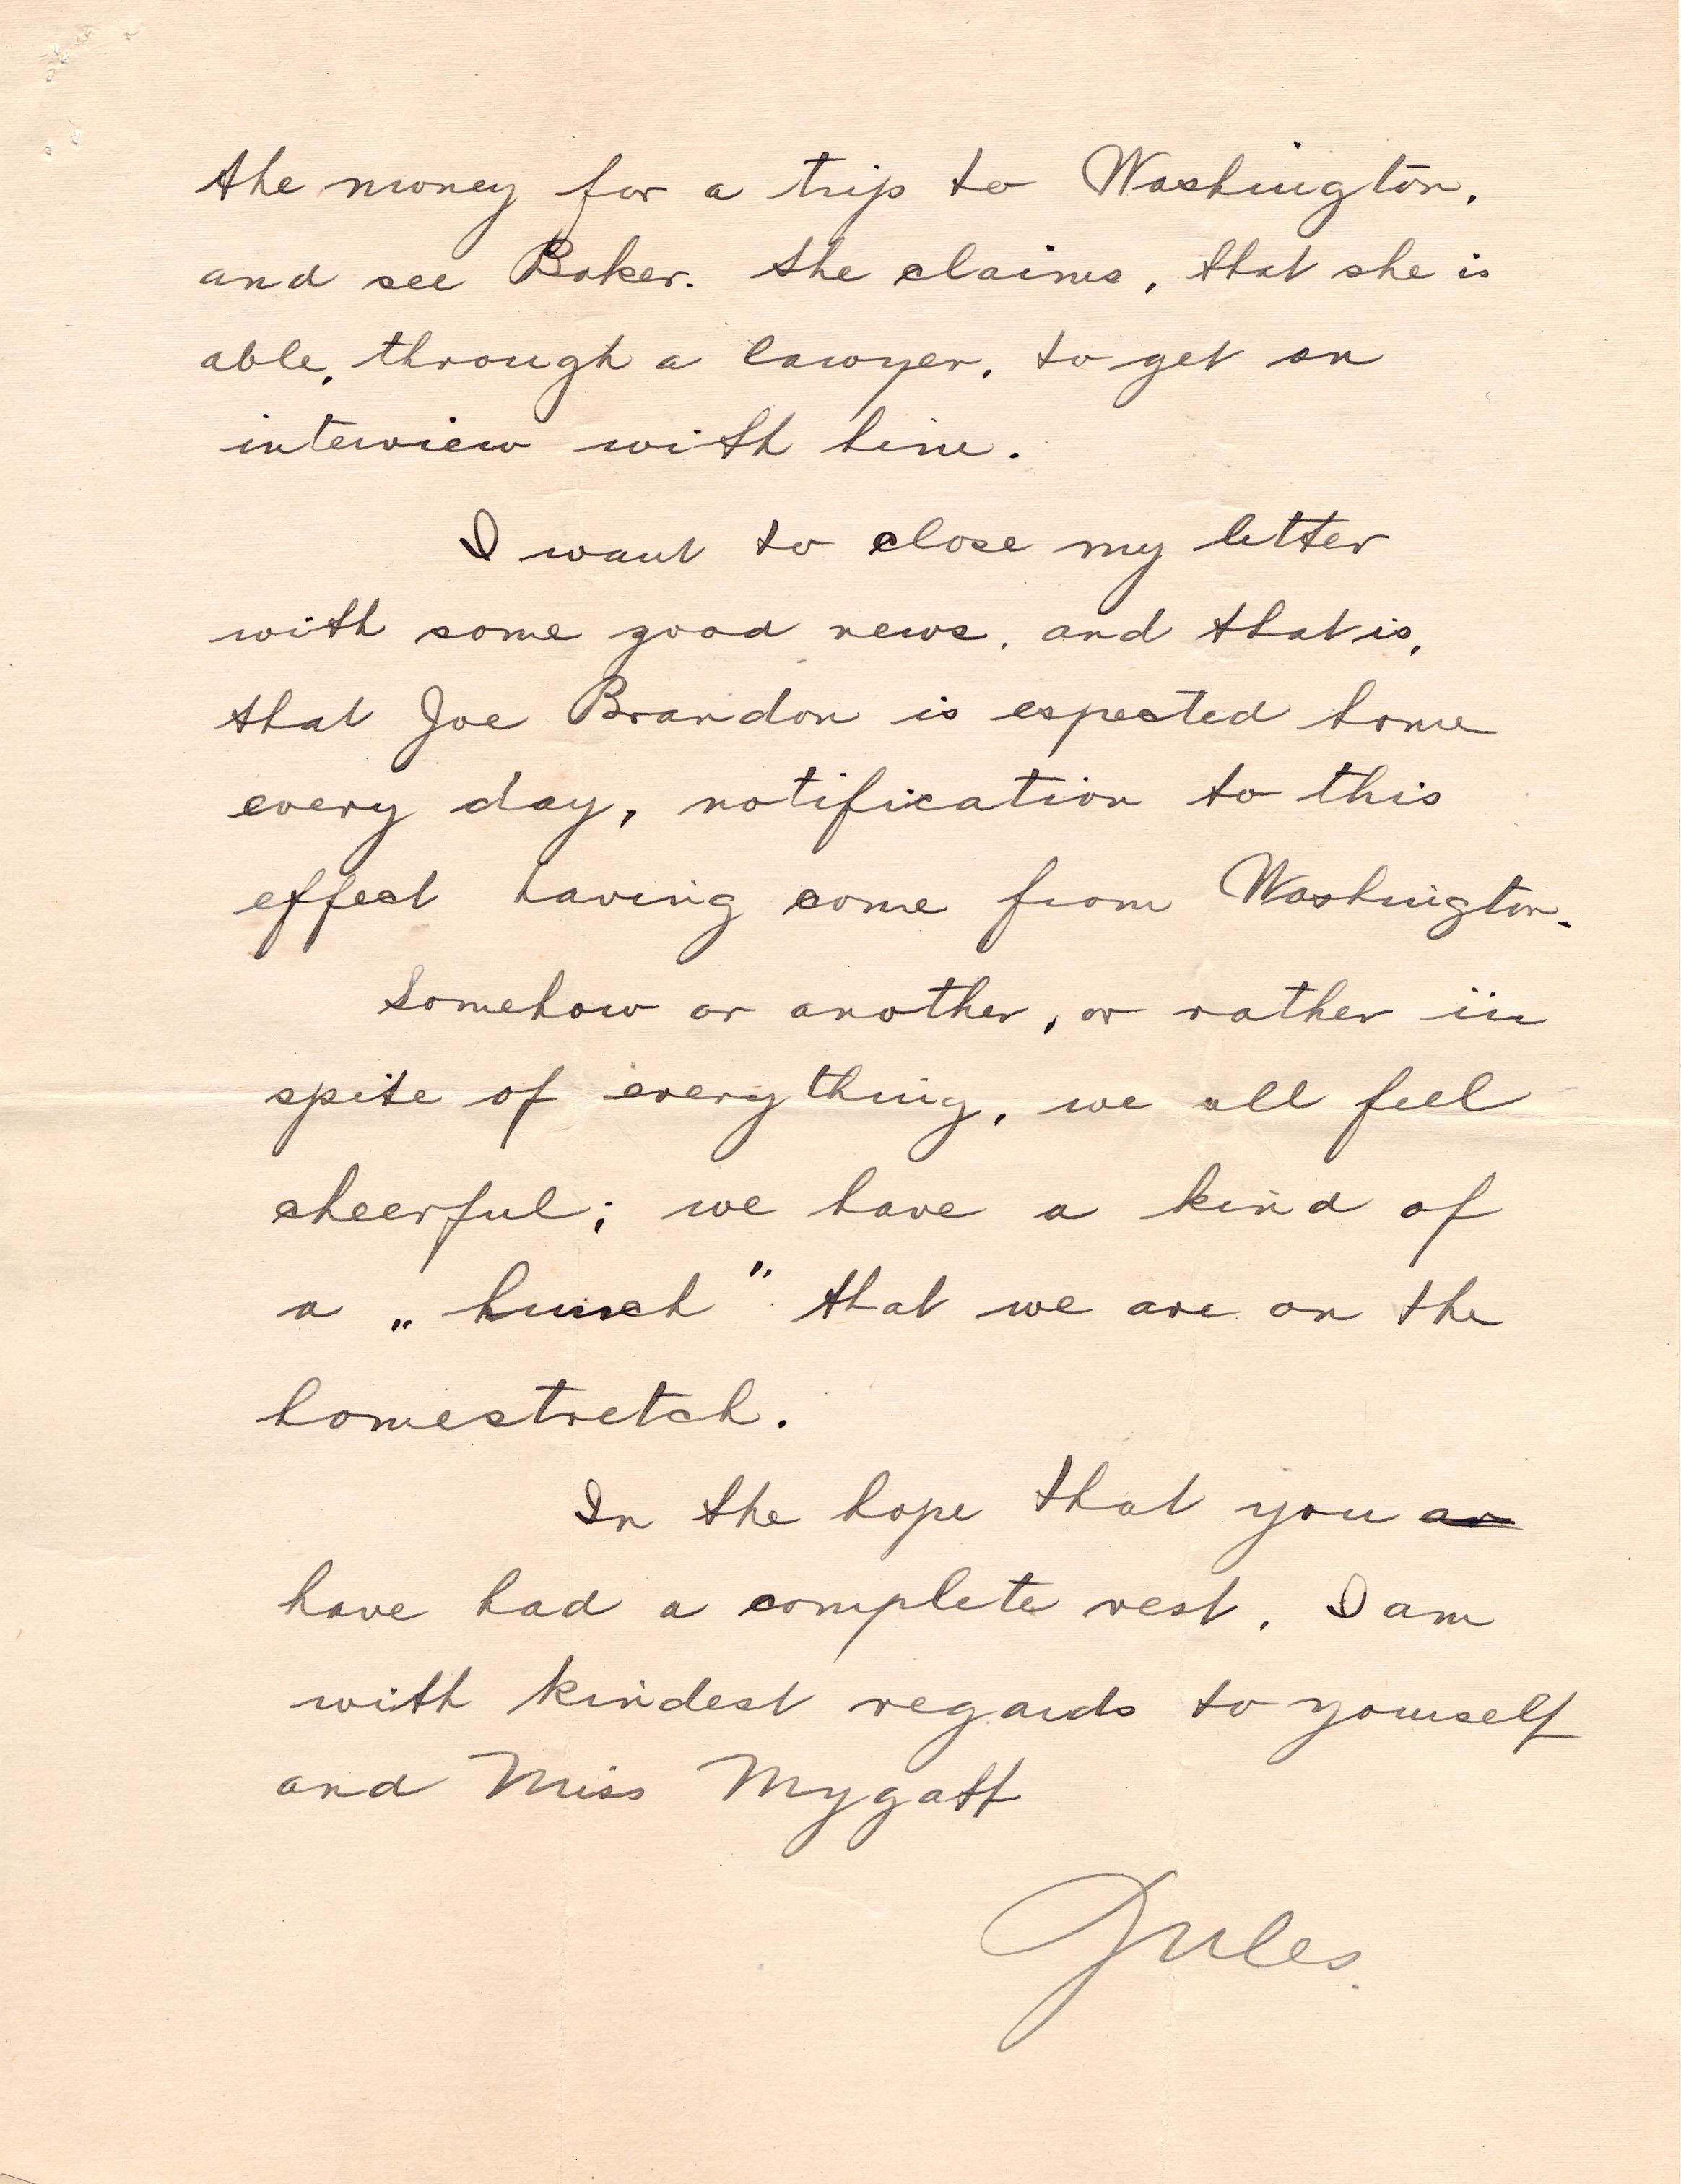 the money for a trip to Washington,
and see Baker. She claims, that she is
able, through a lawyer, to get an
interview with him.
I want to close my letter
with some good news, and that is,
that Joe Brandon is expected home
every day, notification to this
effect having come from Washington.
Somehow or another, or rather in
spite of everything, we all feel
cheerful; we have a kind of
a „hunch" that we are on the
homestretch.
In the hope that you ar
have had a complete rest, I am
with kindest regards to yourself
and Miss Mygatt
Jules.